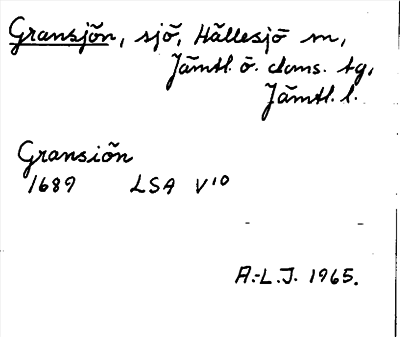 Gransjön, sjö, Hällesjö sn,
Jämtl. ö. doms. tg,
Jämtl. l.
Gransiön
1689 LSA V¹⁰
A.-L.J. 1965.